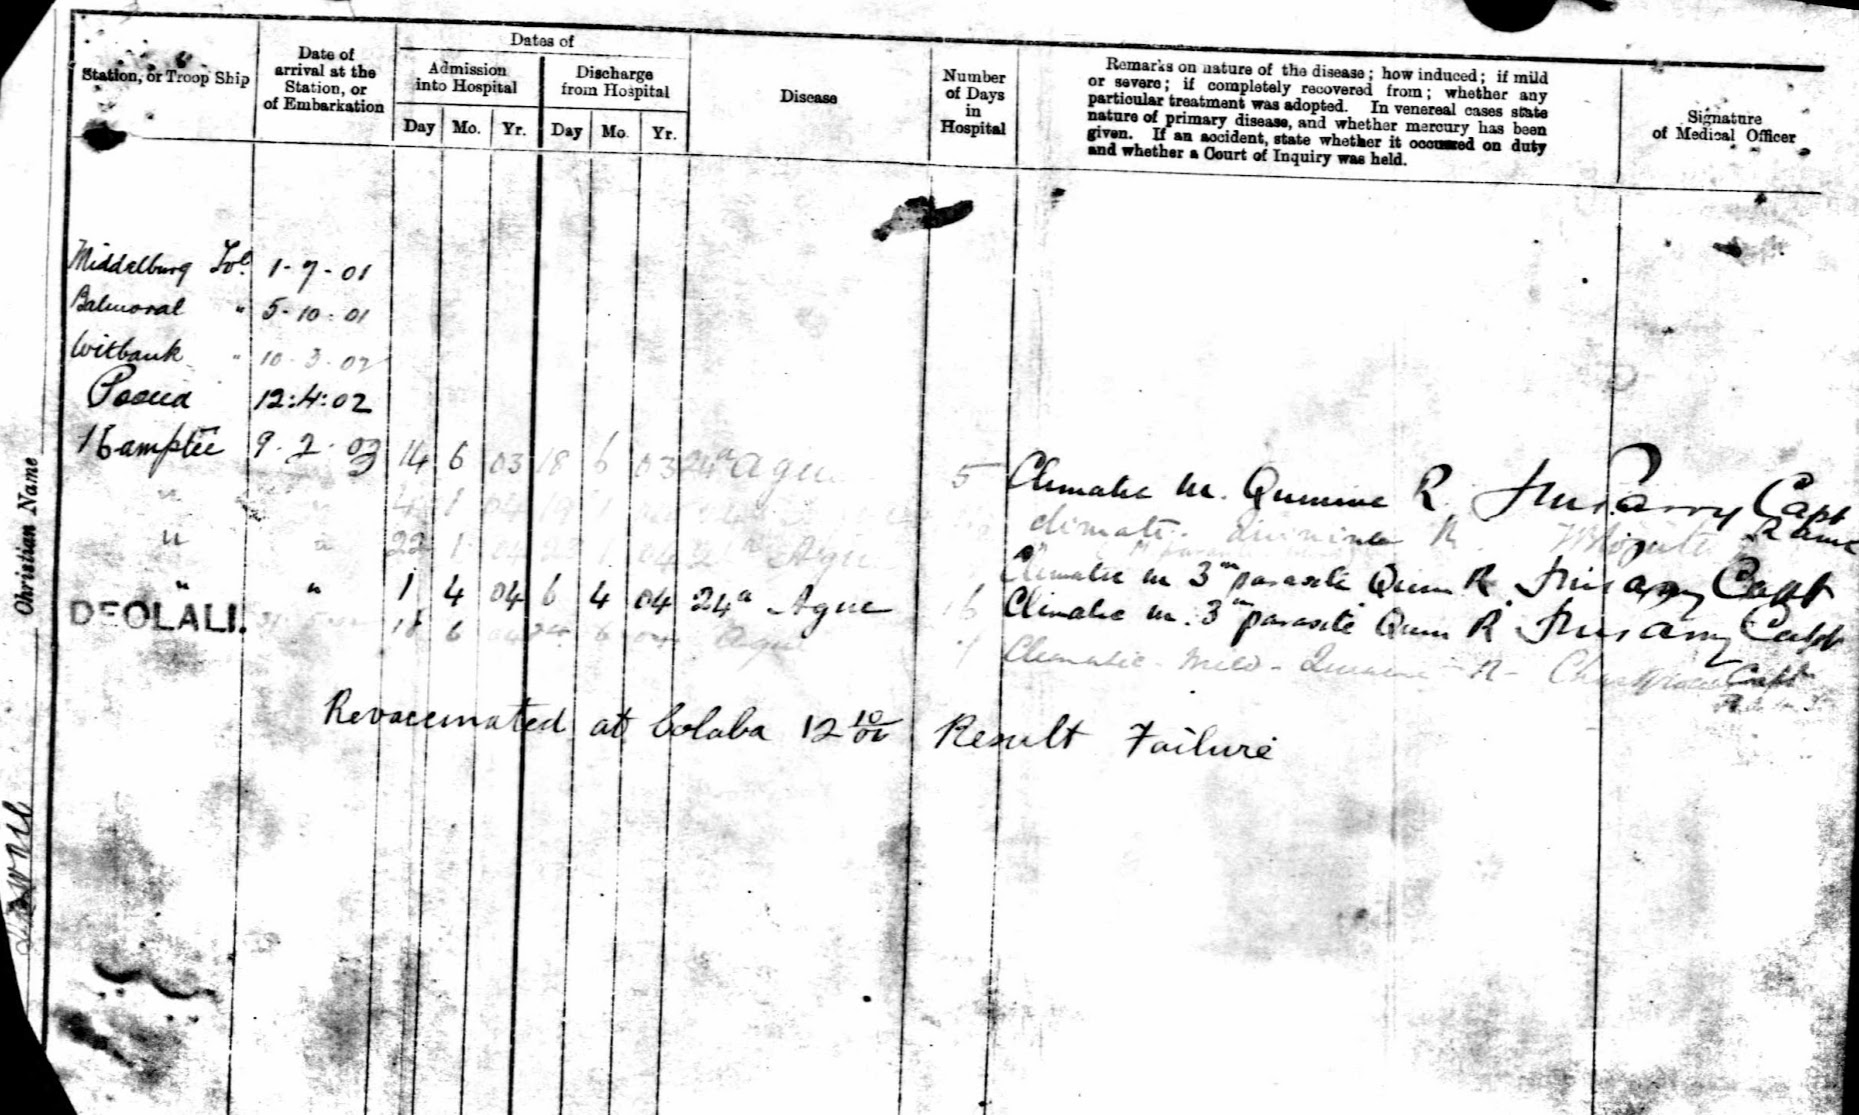 Dates of
Station, or Troop Ship
Date of
arrival at the
Station, or
of Embarkation
Admission
into Hospital
Discharge
from Hospital
Disease
Number
of Days
in
Hospital
Remarks on nature of the disease; how induced; if mild
or severe; if completely recovered from; whether any
particular treatment was adopted. In venereal cases state
nature of primary disease, and whether mercury has been
given. If an accident, state whether it occurred on duty
and whether a Court of Inquiry was held.
Signature
of Medical Officer
Day Mo. Yr. Day Mo. Yr.
Middelburg Tvl. 1-7-01
Balmoral " 5-10-01
Witbank " 10-3-02
Poona 12:4:02
Kamptee 9-2-03 14 6 03 18 6 03 24a Ague 5 Climatic m. Quinine R. Capt
" 4 1 04 climatic. Quinine R.
" " 22 1 04 1 04 Ague Climatic m 3rd parasite Quin R. Capt
" " 1 4 04 6 4 04 24a Ague 6 Climatic m. 3rd parasite Quin R. Capt
DEOLALI. 18 6 04 24 6 04 Ague 7 Climatic - Mild - Quinine - R - Capt
Revaccinated at Colaba 12 10/04 Result Failure
Christian Name